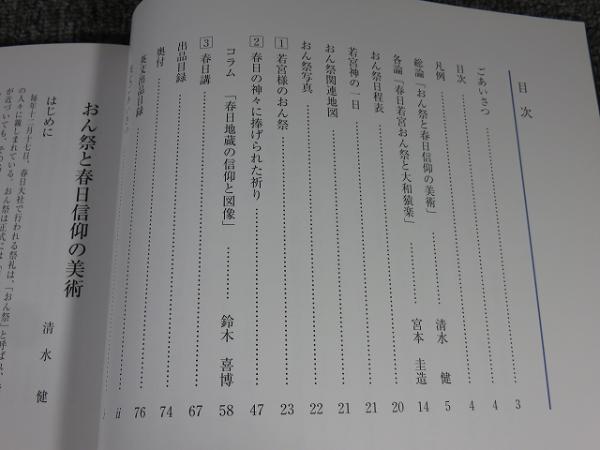 目次
ごあいさつ 3
目次 4
凡例 4
総論「おん祭と春日信仰の美術」 清水 健 5
各論「春日若宮おん祭と大和猿楽」 宮本 圭造 14
おん祭日程表 20
若宮神の一日 21
おん祭関連地図 21
おん祭写真 22
1 若宮様のおん祭 23
2 春日の神々に捧げられた祈り 47
コラム 「春日地蔵の信仰と図像」 鈴木 喜博 58
3 春日講 67
出品目録 74
奥付 76
英文出品目録 ii
おん祭と春日信仰の美術
清水 健
はじめに
毎年十二月十七日、春日大社で行われる祭礼は、「おん祭」と呼ばれ、
の人々に親しまれている。おん祭は正式には
が近づいても、